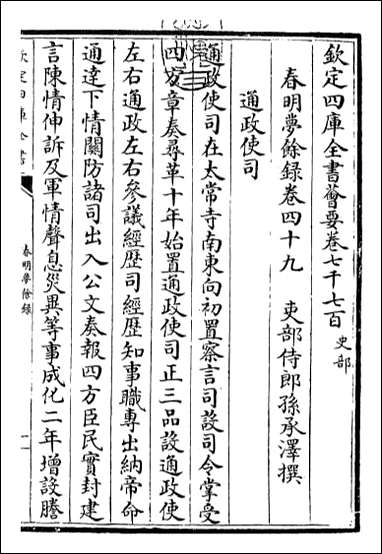 欽定四庫全書薈要卷七千七百 史部
春明夢餘録卷四十九 吏部侍郎孫承澤撰
通政使司
通政使司在太常寺南東向初置察言司設司令掌受
四方章奏尋革十年始置通政使司正三品設通政使
左右通政左右參議經歴司經歴知事職專出納帝命
通達下情關防諸司出入公文奏報四方臣民實封建
言陳情伸訴及軍情聲息災異等事成化二年增設謄
欽定四庫全書
春明夢餘録